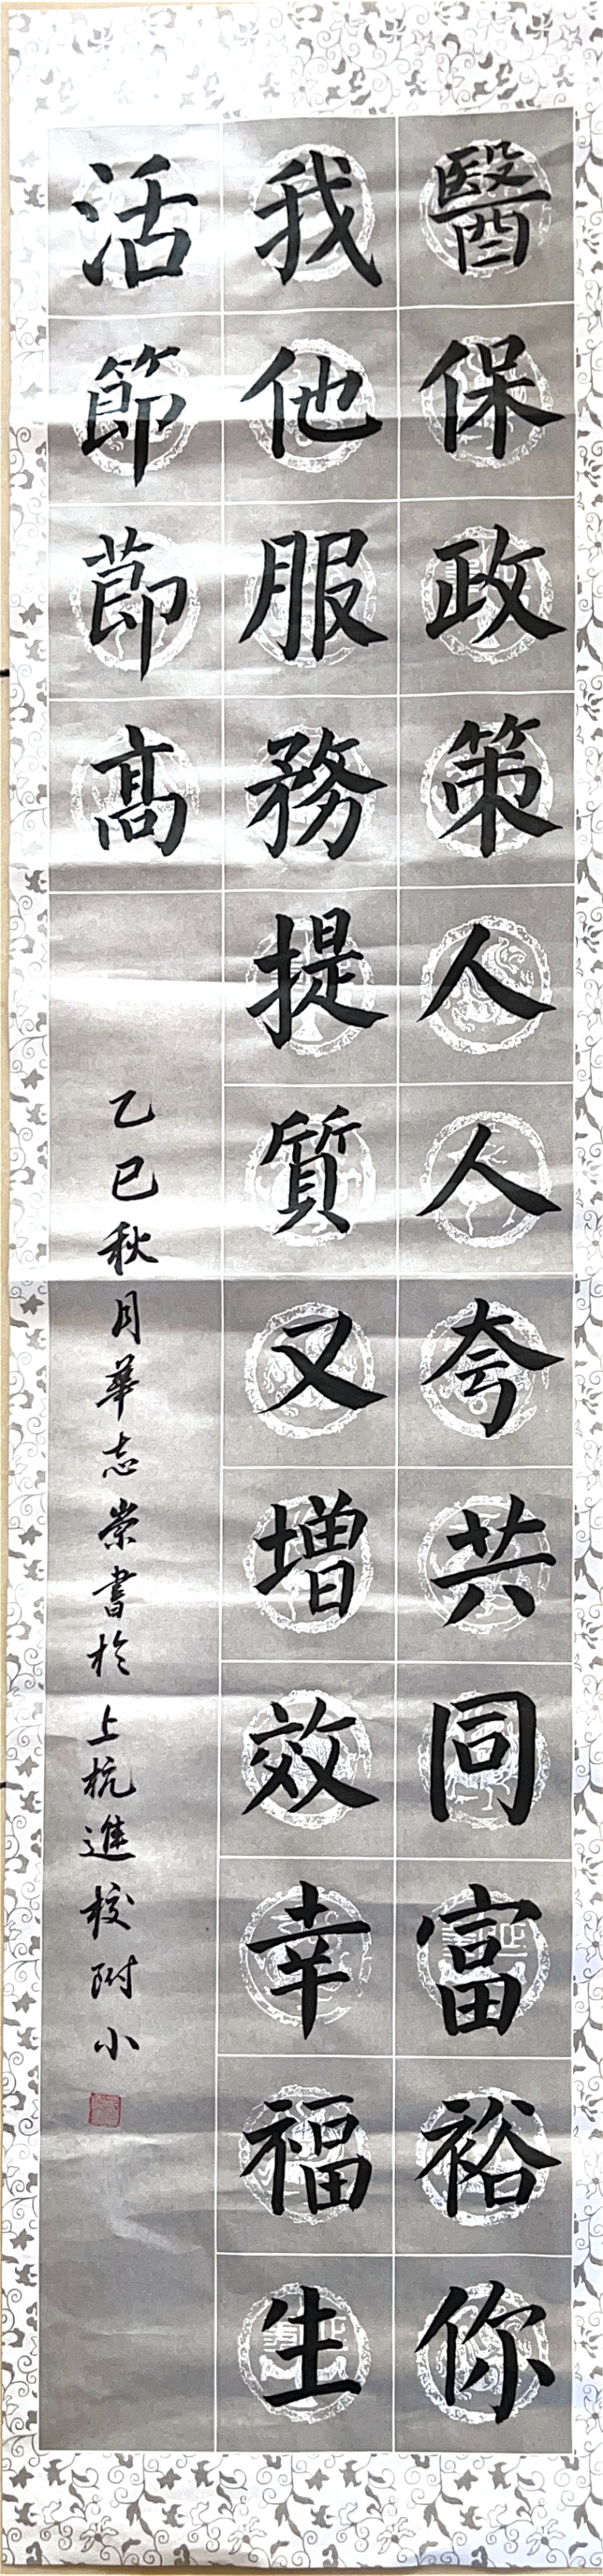 醫保政策人人夸共同富裕你
我他服務提質又增效幸福生
活節莭髙
乙巳秋月華志崇書於上杭進校附小